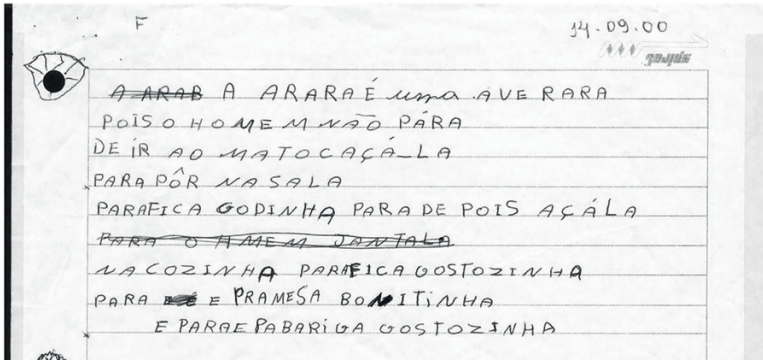 F
14.09.00
~~A ARAB~~ A ARARA É uma AVE RARA
POIS O HOMEM NÃO PÁRA
DE IR AO MATO CAÇÁ-LA
PARA PÔR NA SALA
PARAFICA GODINHA PARA DE POIS AÇÁLA
~~PARA O AMEM JANTALA~~
NA COZINHA PARAFICA GOSTOZINHA
PARA E PRAMESA BONITINHA
E PARAE PABARIGA GOSTOZINHA